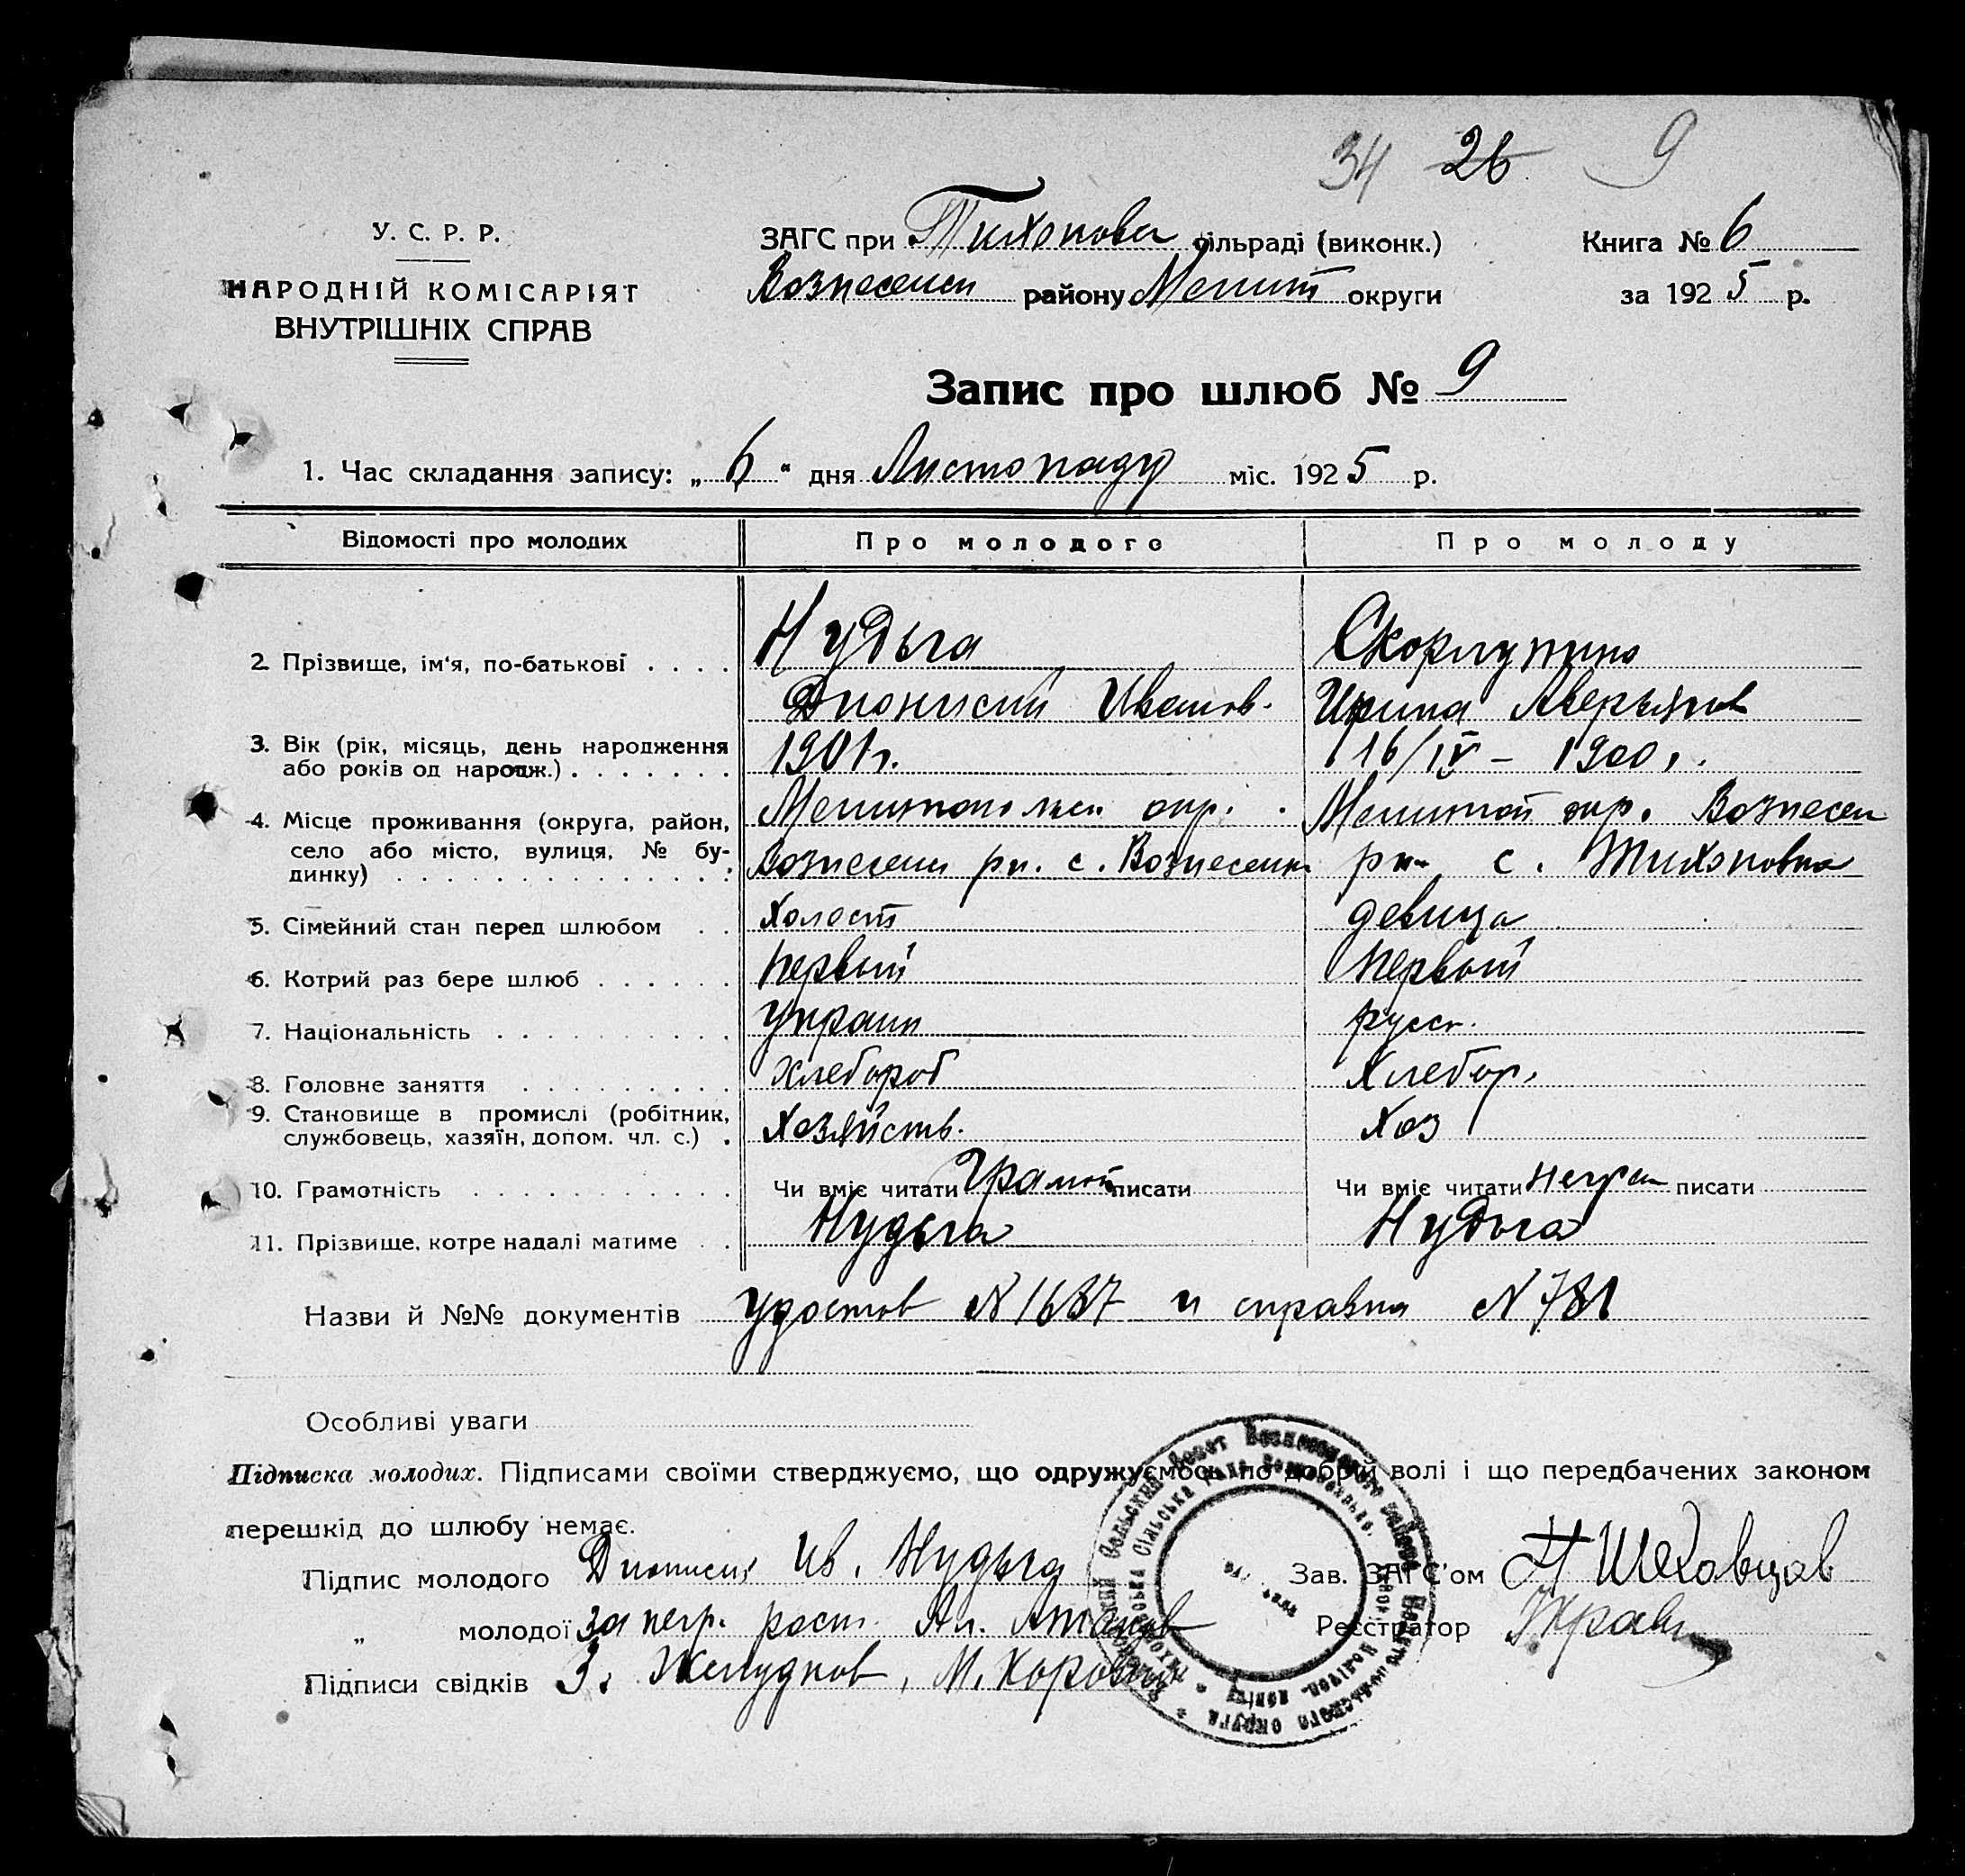 34 26 9
У. С. Р. Р.
НАРОДНІЙ КОМІСАРІЯТ
ВНУТРІШНІХ СПРАВ
ЗАГС при Тихонови сільраді (виконк.)
Вознесенси району Мелит округи
Книга № 6
за 1925 р.
Запис про шлюб № 9
1. Час складання запису: „ 6 " дня Листопаду міс. 1925 р.
Відомості про молодих Про молодого Про молоду
2. Прізвище, ім'я, по-батькові . . . . Нудьга Скорлупина
Дионисий Иванов. Ирина Аверьянов
3. Вік (рік, місяць, день народження
або років од народж.) . . . . . . . 1901 г. 16/IV – 1900 г.
4. Місце проживання (округа, район,
село або місто, вулиця, № бу-
динку) . . . . . . . . . . . . . . .
Мелитопольск окр. Мелитоп окр. Вознесен
Вознесенск рн. с. Вознесенк рн с. Тихоновка
5. Сімейний стан перед шлюбом . . Холост девица
6. Котрий раз бере шлюб . . . . . . первый первый
7. Національність . . . . . . . . . . Украин русск.
8. Головне заняття . . . . . . . . . хлебороб хлебор.
9. Становище в промислі (робітник,
службовець, хазяїн, допом. чл. с.) . Хозяйств. Хоз
10. Грамотність . . . . . . . . . . . Чи вміє читати Грамот писати Чи вміє читати неграм писати
11. Прізвище, котре надалі матиме . . Нудьга Нудьга
Назви й №№ документів удостов N 1637 и справка N 781
Особливі уваги
Підписка молодих. Підписами своїми стверджуємо, що одружуємось по добрій волі і що передбачених законом
перешкід до шлюбу немає.
Підпис молодого Дионисий Ив. Нудьга
„ молодої за негр. расп. Ал.
Підписи свідків З. Желудков, М. Хоровец
Зав. ЗАГС'ом Н Шеховцов
Реєстратор
Сельский Совет Вознесенского района Мелитопольского округа
Сільська Рада